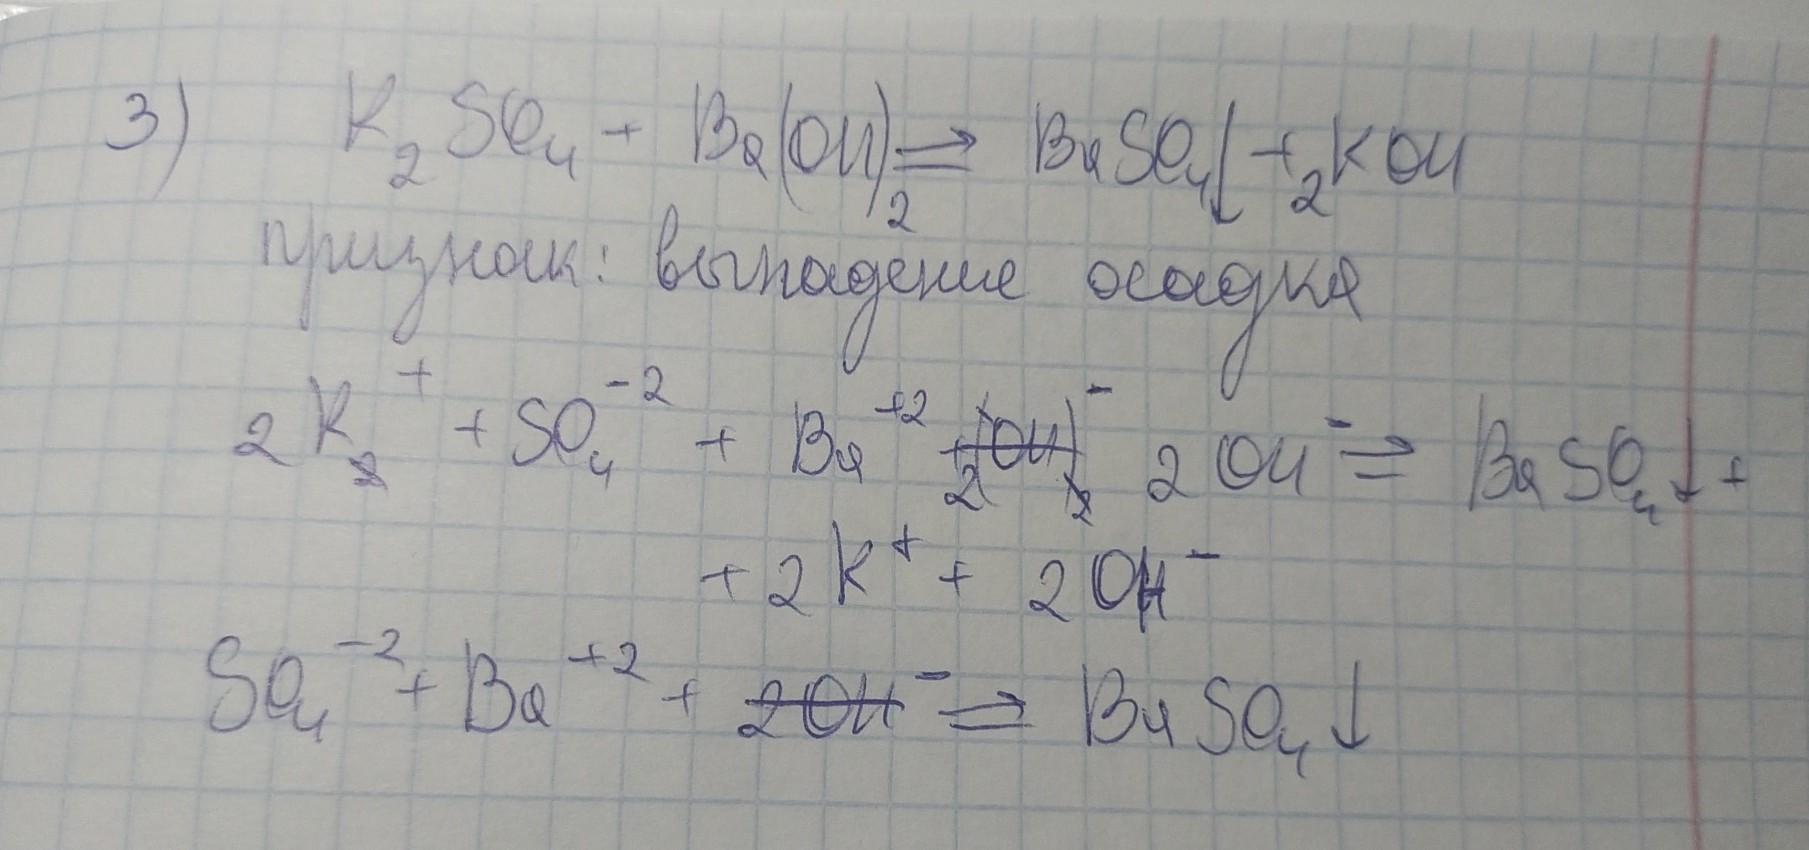 3) K₂SO₄ + Ba(OH)₂ ⇒ BaSO₄↓ + 2KOH
признак: выпадение осадка
2K⁺ + SO₄⁻² + Ba⁺² + 2OH⁻ ⇒ BaSO₄↓ +
+ 2K⁺ + 2OH⁻
SO₄⁻² + Ba⁺² + 2OH⁻ ⇒ BaSO₄↓